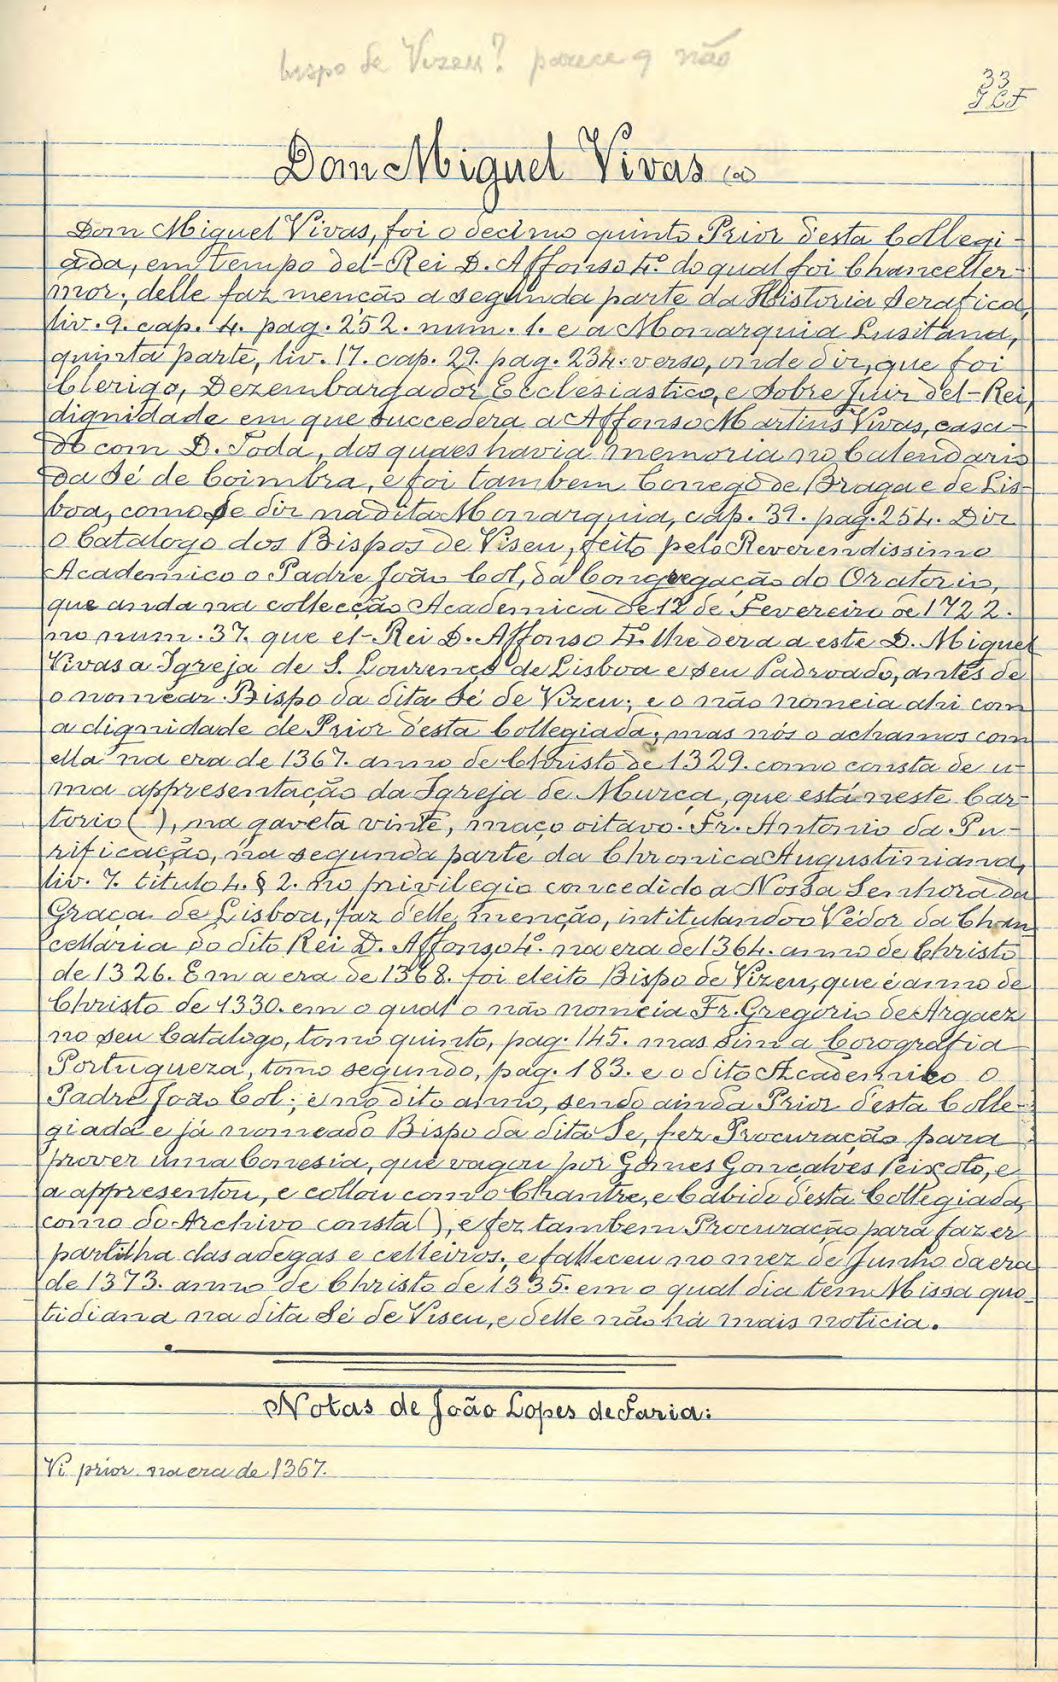 bispo de Vizeu? parece q não
33
JLF
Dom Miguel Vivas (a)
Dom Miguel Vivas, foi o decimo quinto Prior d'esta Collegi-
ada, em tempo del-Rei D. Affonso 4º. do qual foi Chanceller-
mor; delle faz menção a segunda parte da Historia Serafica,
liv. 9. cap. 4. pag. 252. num. 1. e a Monarquia Lusitana,
quinta parte, liv. 17. cap. 29. pag. 234. verso, onde diz, que foi
Clerigo, Dezembargador Ecclesiastico, e Sobre Juiz del-Rei,
dignidade em que succedera a Affonso Martins Vivas, casa-
do com D. Toda, dos quaes havia memoria no Calendario
da Sé de Coimbra, e foi tambem Conego de Braga e de Lis-
boa, como se diz na dita Monarquia, cap. 39. pag. 254. Diz
o Catalogo dos Bispos de Viseu, feito pelo Reverendissimo
Academico o Padre João Col, da Congregação do Oratorio,
que anda na collecção Academica de 12 de Fevereiro de 1722.
no num. 37. que el-Rei D. Affonso 4º. lhe dera a este D. Miguel
Vivas a Igreja de S. Lourenço de Lisboa e seu Padroado, antes de
o nomear Bispo da dita Sé de Vizeu; e o não nomeia ahi com
a dignidade de Prior d'esta Collegiada; mas nós o achamos com
ella na era de 1367. anno de Christo de 1329. como consta de u-
ma appresentação da Igreja de Murça, que está neste Car-
torio ( ), na gaveta vinte, maço oitavo. Fr. Antonio da Pu-
rificação, na segunda parte da Chronica Augustiniana,
liv. 7. titulo 4. § 2. no privilegio concedido a Nossa Senhora da
Graça de Lisboa, faz d'elle menção, intitulando o Védor da Chan-
cellária do dito Rei D. Affonso 4º. na era de 1364. anno de Christo
de 1326. Em a era de 1368. foi eleito Bispo de Vizeu, que é anno de
Christo de 1330. em o qual o não nomeia Fr. Gregorio de Argaez
no seu Catalogo, tomo quinto, pag. 145. mas sim a Corografia
Portugueza, tomo segundo, pag. 183. e o dito Academico o
Padre João Col; e no dito anno, sendo ainda Prior d'esta Colle-
giada e já nomeado Bispo da dita Sé, fez Procuração para
prover uma Conesia, que vagou por Gomes Gonçalves Peixoto, e
a appresentou, e collou com o Chantre, e Cabido d'esta Collegiada,
como do Archivo consta ( ), e fez tambem Procuração para fazer
partilha das adegas e celleiros; e falleceu no mez de Junho da era
de 1373. anno de Christo de 1335. em o qual dia tem Missa quo-
tidiana na dita Sé de Viseu, e delle não há mais noticia.
Notas de João Lopes de Faria:
Vi prior na era de 1367.